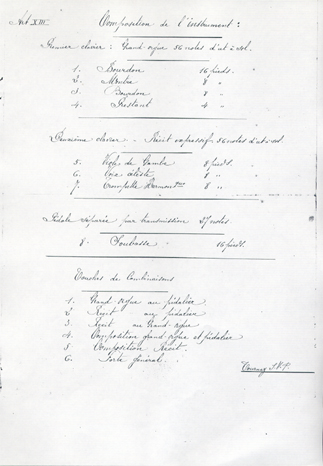 Art XIII
Composition de l'instrument :
Premier clavier : Grand-orgue 56 notes d'ut à sol.
1. Bourdon 16 pieds.
2. Montre 8 "
3. Bourdon 8 "
4. Prestant 4 "
Deuxième clavier - Récit expressif 56 notes d'ut à sol.
5. Viole de Gambe 8 pieds.
6. Voix céleste 8 "
7. Trompette Harmonique 8 "
Pédale séparée par transmission 27 notes
8. Soubasse 16 pieds.
Touches de Combinaisons
1. Grand-orgue au pédalier
2. Récit au pédalier
3. Récit au Grand-orgue
4. Composition grand-orgue et pédalier
5. Composition Récit.
6. Forte général.
Tournez S.V.P.